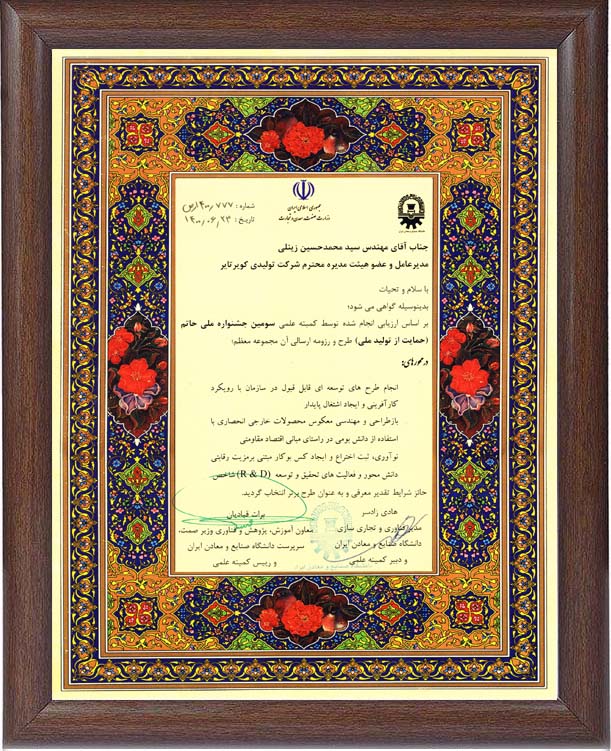 جمهوری اسلامی ایران
وزارت صنعت، معدن و تجارت
شماره : ۱۴۰۰/۷۷۷/ص
تاریخ : ۱۴۰۰/۰۶/۲۳
جناب آقای مهندس سید محمدحسین زینلی
مدیرعامل و عضو هیئت مدیره محترم شرکت تولیدی کویرتایر
با سلام و تحیات
بدینوسیله گواهی می شود؛
بر اساس ارزیابی انجام شده توسط کمیته علمی سومین جشنواره ملی حاتم
(حمایت از تولید ملی) طرح و رزومه ارسالی آن مجموعه معظم؛
در محورهای:
انجام طرح های توسعه ای قابل قبول در سازمان با رویکرد
کارآفرینی و ایجاد اشتغال پایدار
بازطراحی و مهندسی معکوس محصولات خارجی انحصاری با
استفاده از دانش بومی در راستای مبانی اقتصاد مقاومتی
نوآوری، ثبت اختراع و ایجاد کسب وکار مبتنی برمزیت رقابتی
دانش محور و فعالیت های تحقیق و توسعه (R & D) شاخص
حائز شرایط تقدیر معرفی و به عنوان طرح برتر انتخاب گردید.
هادی زادسر
مدیر فناوری و تجاری سازی
دانشگاه صنایع و معادن ایران
و دبیر کمیته علمی
برات قبادیان
معاون آموزش، پژوهش و فناوری وزیر صمت،
سرپرست دانشگاه صنایع و معادن ایران
و رییس کمیته علمی